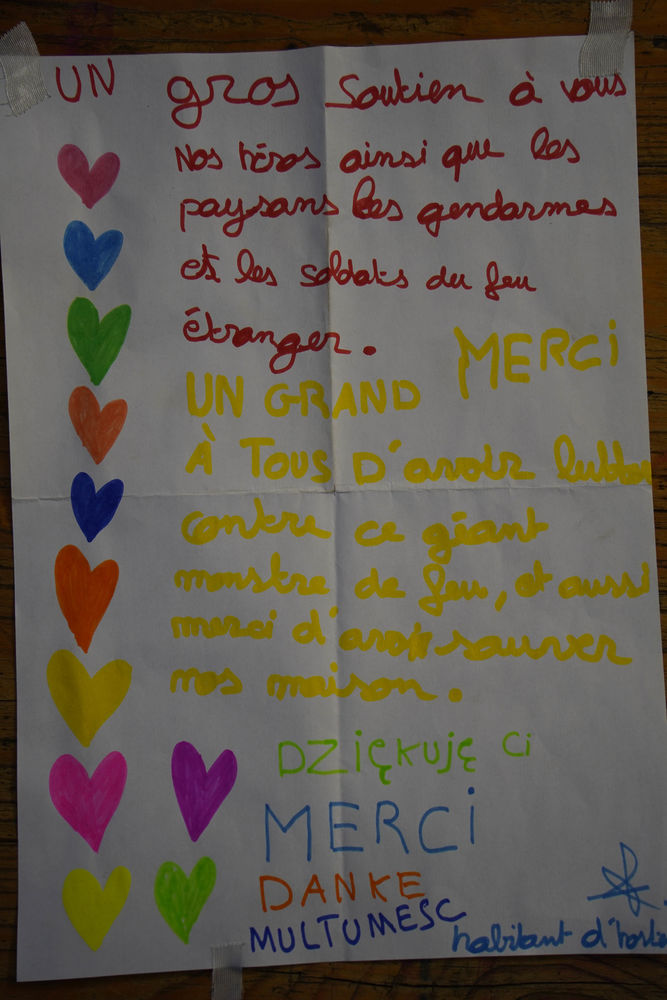 UN gros soutien à vous
Nos héros ainsi que les
paysans les gendarmes
et les soldats du feu
étranger.
UN GRAND MERCI
À TOUS D'avoir lutter
contre ce géant
monstre de feu, et aussi
merci d'avoir sauver
nos maison.
DZiĘKUJĘ Ci
MERCi
DANKE
MULTUMESC
habitant d'